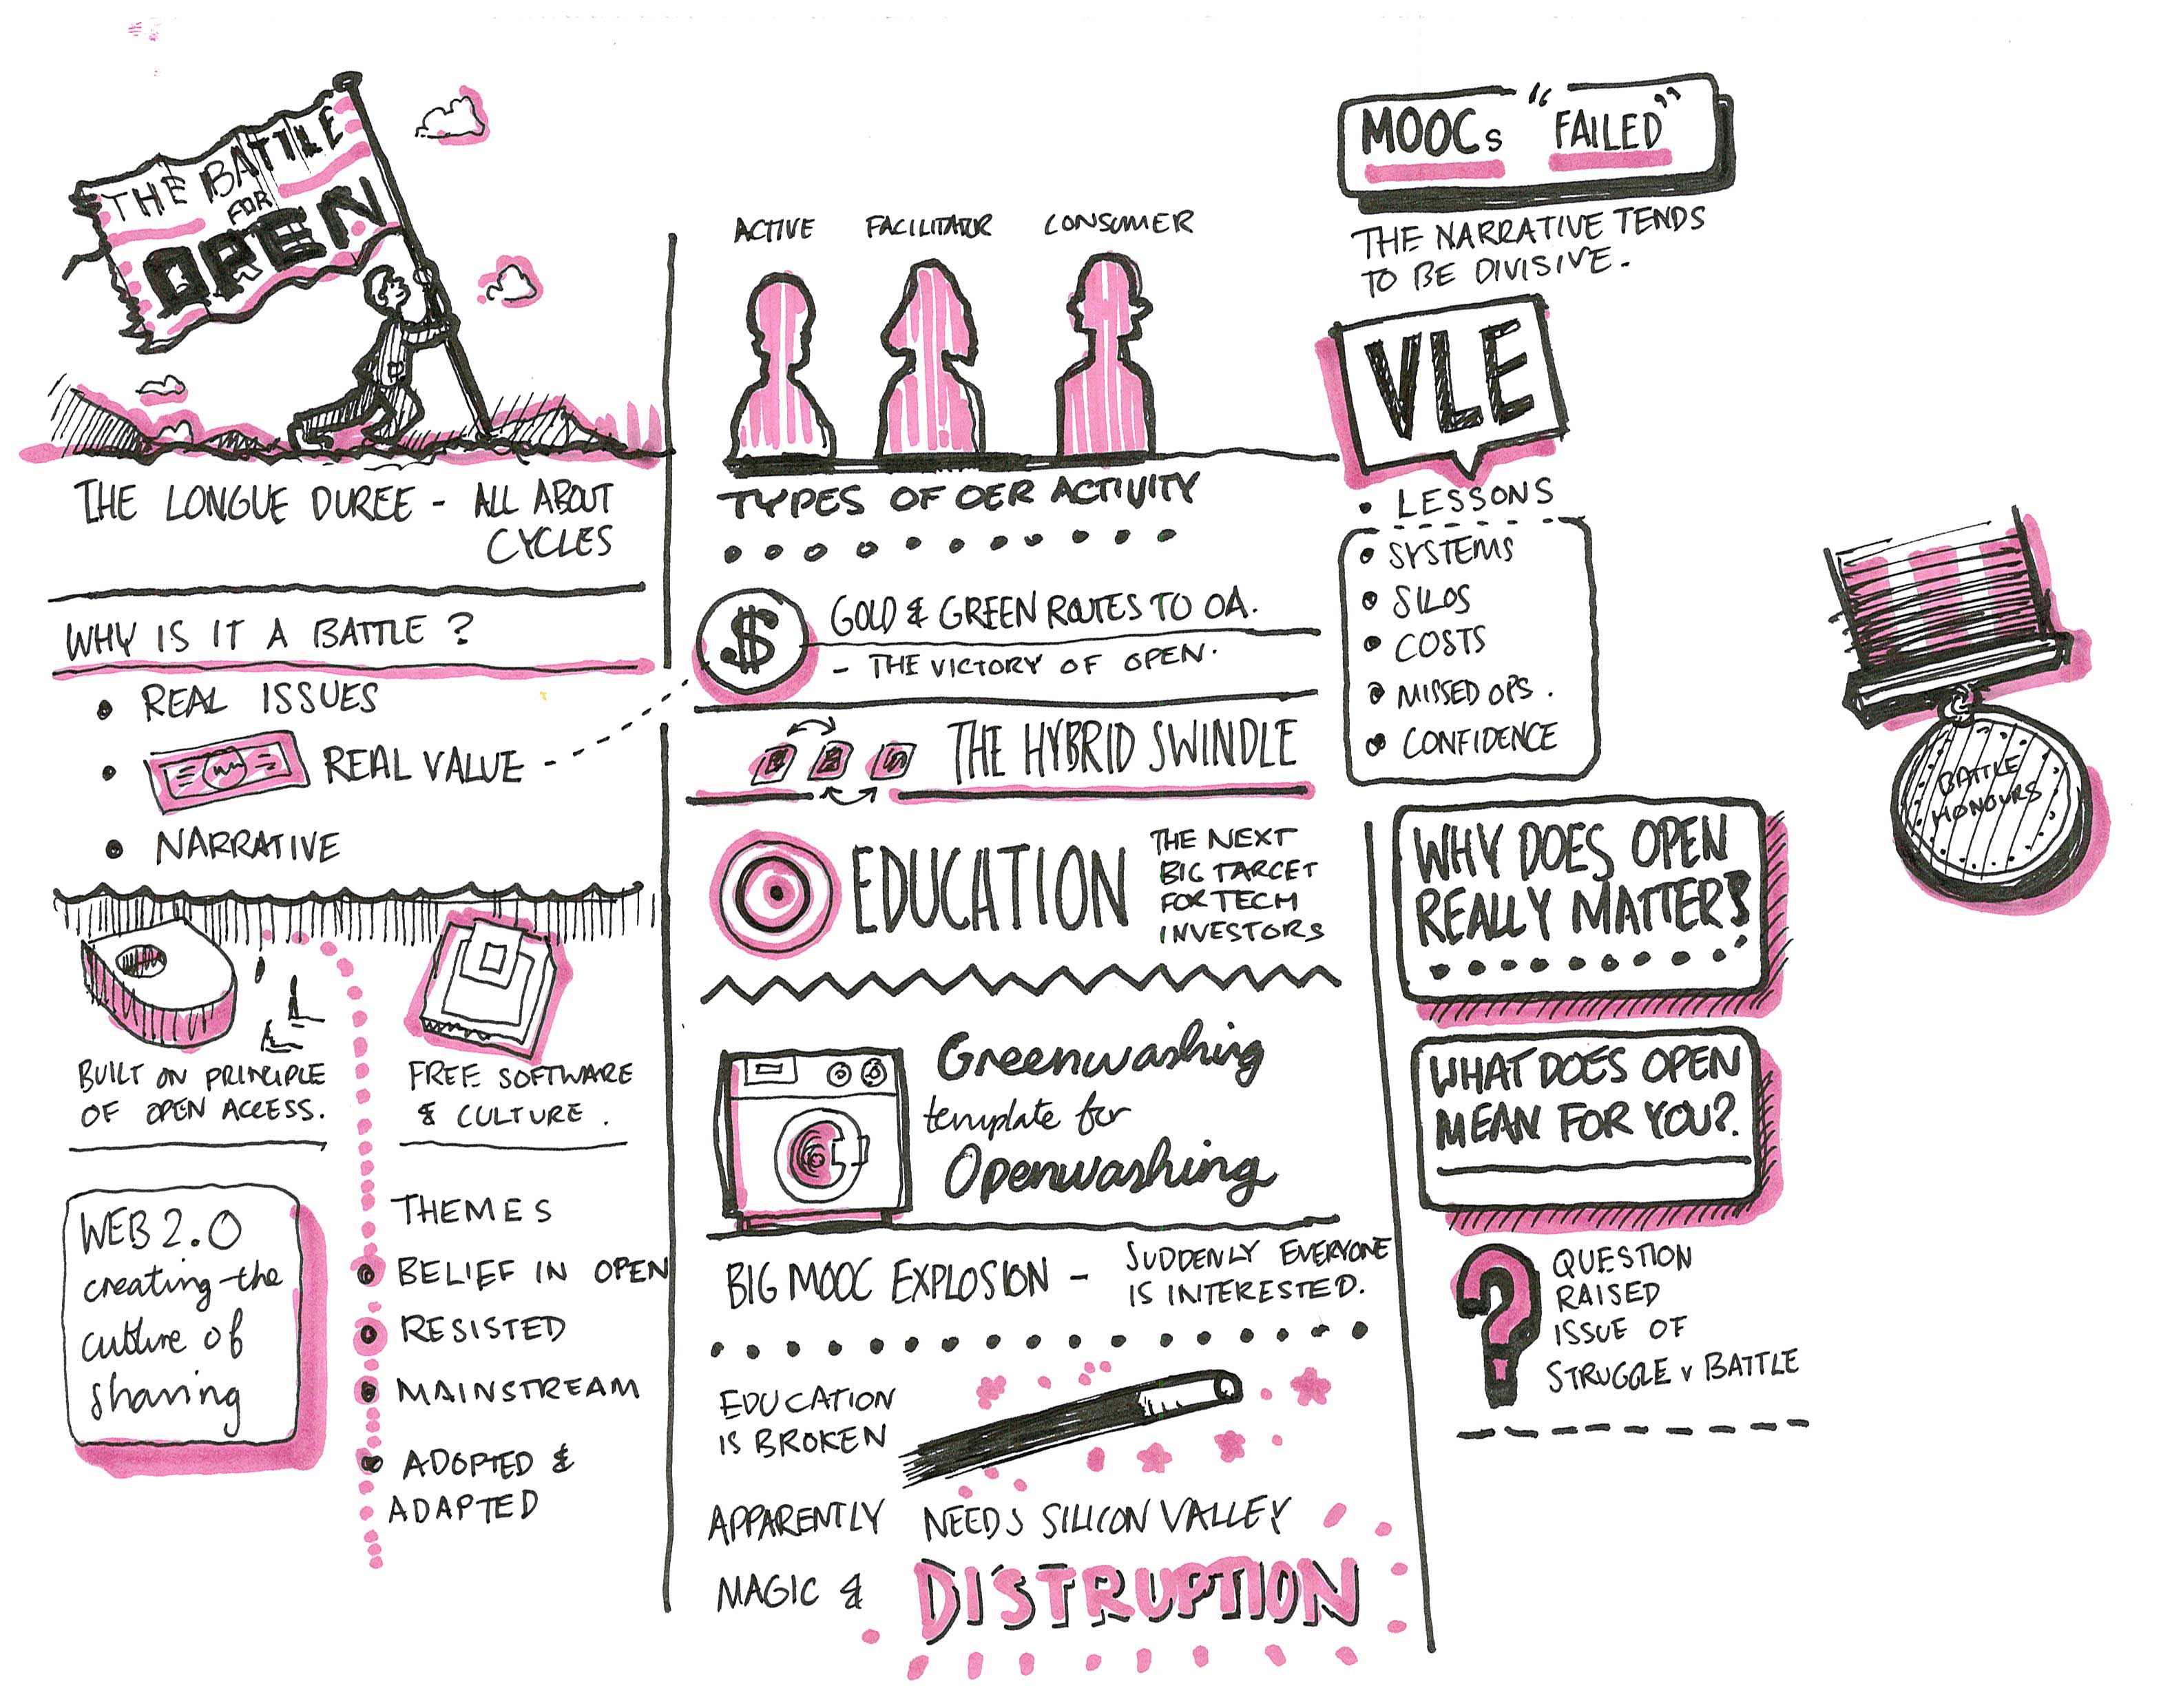 THE BATTLE
FOR
OPEN
THE LONGUE DUREE - ALL ABOUT
CYCLES
WHY IS IT A BATTLE ?
• REAL ISSUES
• REAL VALUE -
• NARRATIVE
BUILT ON PRINCIPLE
OF OPEN ACCESS.
FREE SOFTWARE
& CULTURE.
WEB 2.0
creating the
culture of
sharing
THEMES
BELIEF IN OPEN
RESISTED
MAINSTREAM
ADOPTED &
ADAPTED
ACTIVE FACILITATOR CONSUMER
TYPES OF OER ACTIVITY
$
GOLD & GREEN ROUTES TO OA.
- THE VICTORY OF OPEN.
THE HYBRID SWINDLE
EDUCATION
THE NEXT
BIG TARGET
FOR TECH
INVESTORS
Greenwashing
template for
Openwashing
BIG MOOC EXPLOSION -
SUDDENLY EVERYONE
IS INTERESTED.
EDUCATION
IS BROKEN
APPARENTLY NEEDS SILICON VALLEY
MAGIC & DISTRUPTION
MOOCs "FAILED"
THE NARRATIVE TENDS
TO BE DIVISIVE.
VLE
• LESSONS
• SYSTEMS
• SILOS
• COSTS
• MISSED OPS.
• CONFIDENCE
WHY DOES OPEN
REALLY MATTER?
WHAT DOES OPEN
MEAN FOR YOU?
?
QUESTION
RAISED
ISSUE OF
STRUGGLE v BATTLE
BATTLE
HONOURS